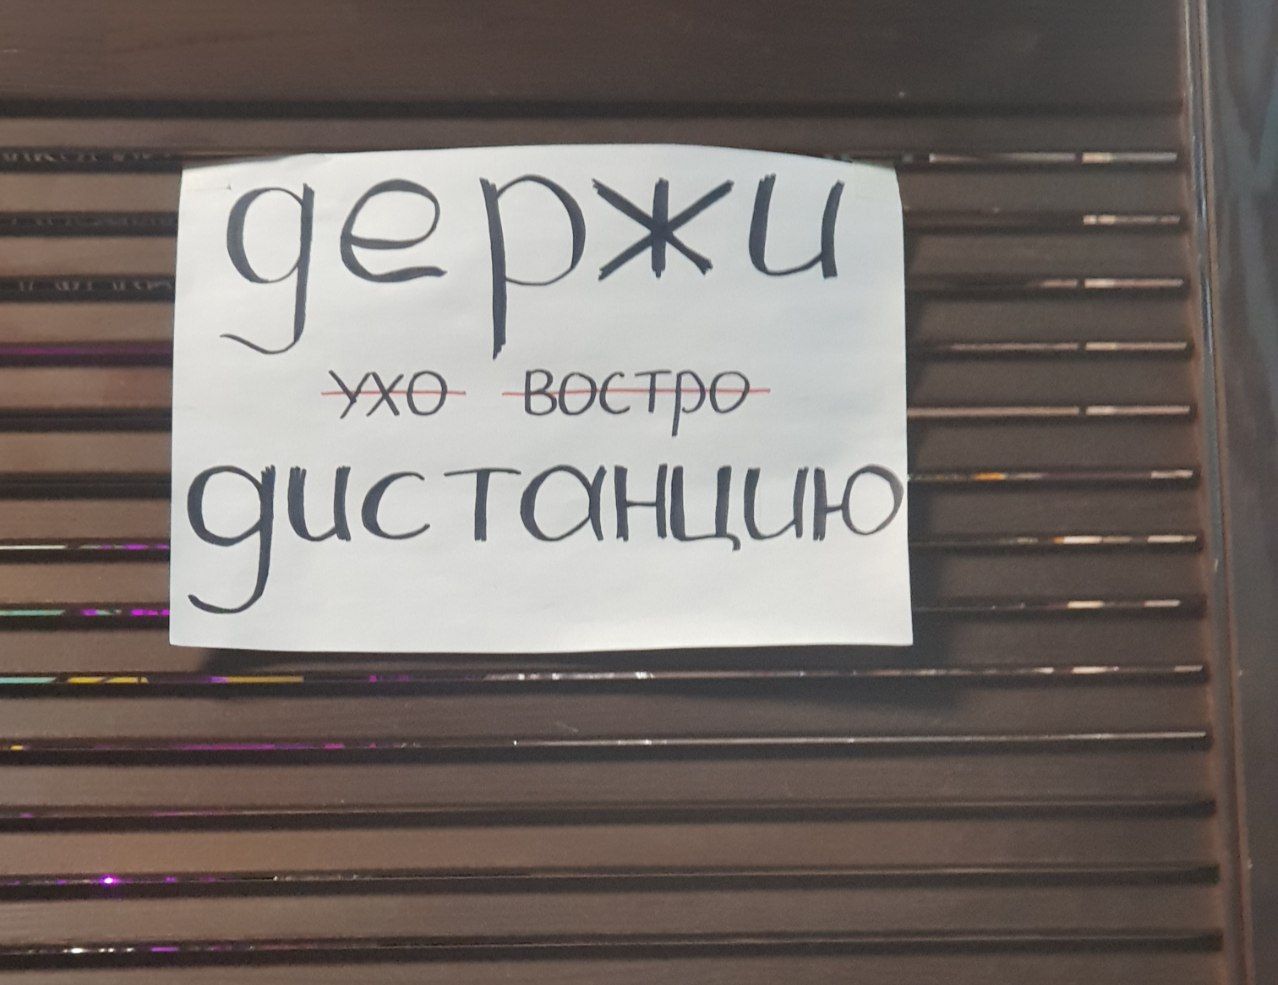 держи
ухо востро
дистанцию